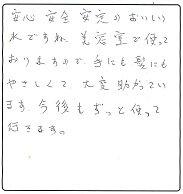 安心 安全 安定 の おいしい
水ですね 美容室で使って
おりますので、手にも 髪にも
やさしくて、大変 助かってい
ます。今後も ずっと 使って
行きます。